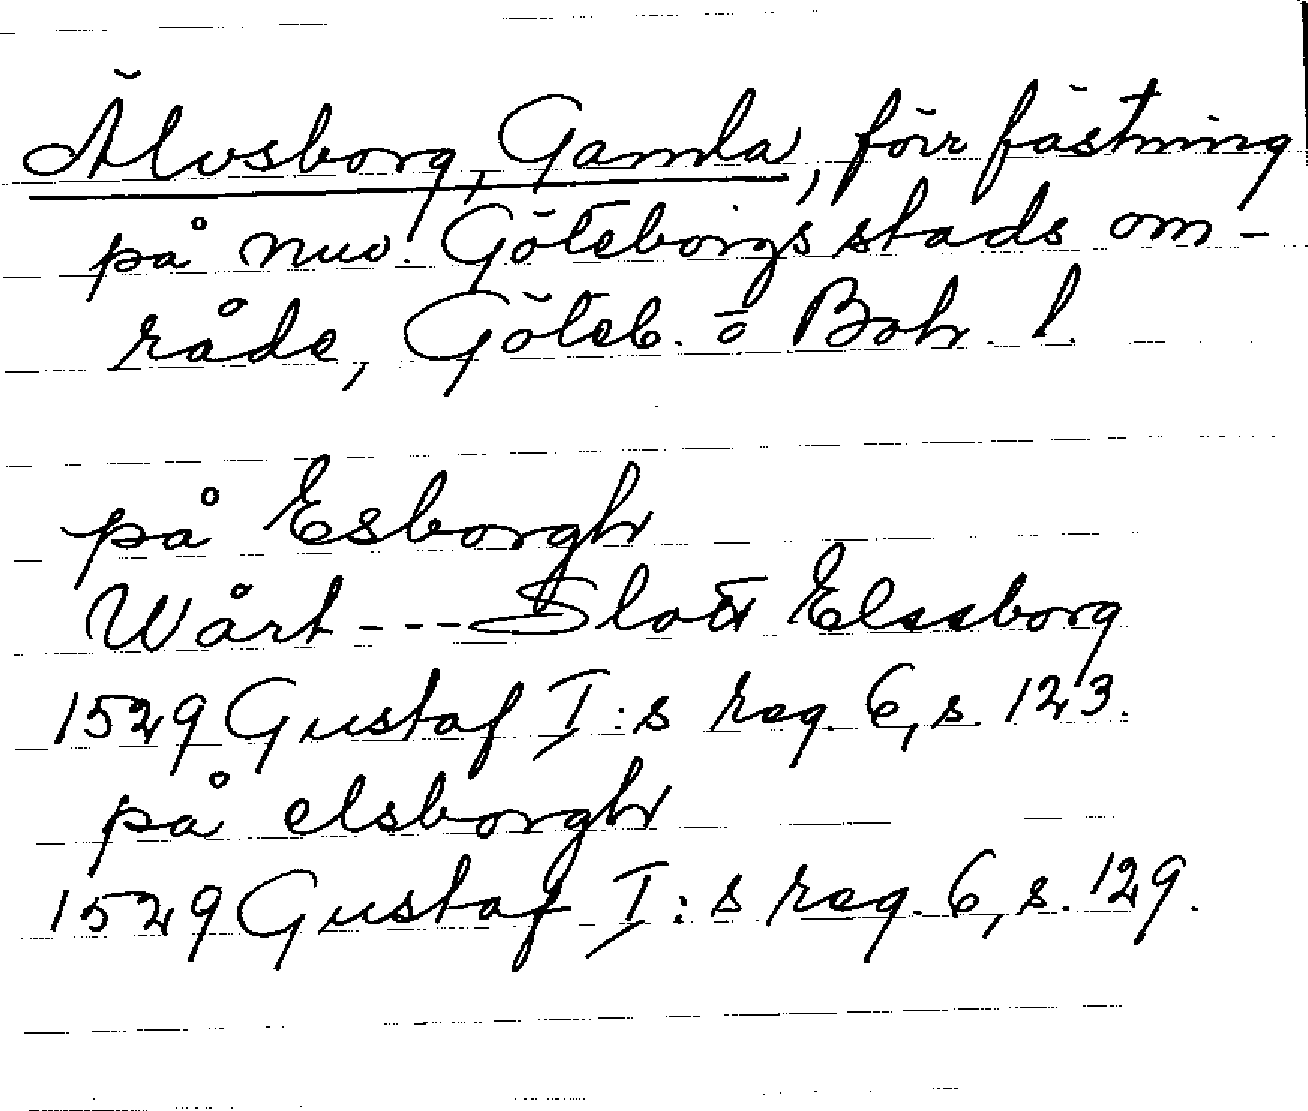 Älvsborg, Gamla, förr fästning
på nuv. Göteborgs stads om-
råde, Göteb. o Boh. l.
på Esborgh
Wårt --- Slott Elssborg
1529 Gustaf I:s reg. 6, s. 123.
på elsborgh
1529 Gustaf I:s reg. 6, s. 129.